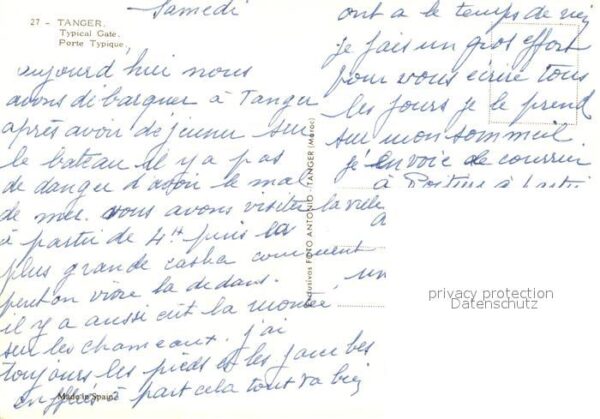 27 - TANGER.
Typical Gate.
Porte Typique.
Samedi
aujourd'hui nous
avons débarquer à Tanger
après avoir déjeuner sur
le bateau il y a pas
de danger d'avoir le mal
de mer. nous avons visiter la ville
à partir de 4H puis la
plus grande casba comment
peut on vivre la dedans.
il y a aussi eut la montée
sur les chameaux. j'ai
toujours les pieds et les jambes
enflés à part cela tout va bien
ont a le temps de rien
je fais un gros effort
pour vous écrire tous
les jours je le prend
sur mon sommeil
j'envoie de courrier
à
a
un
Exclusivas FOTO ANTONIO - TANGER (Maroc)
Made in Spain
privacy protection
Datenschutz